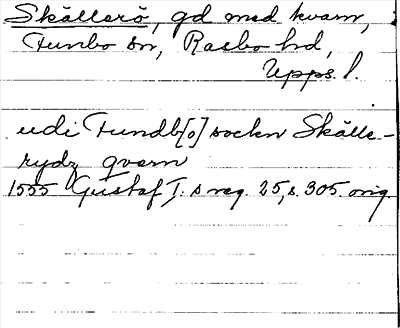 Skällerö, gd med kvarn,
Funbo sn, Rasbo hd,
Upps. l.
udi Fundb[o] sockn Skälle-
rydz qvarn
1555 Gustaf I:s reg. 25, s. 305. orig.